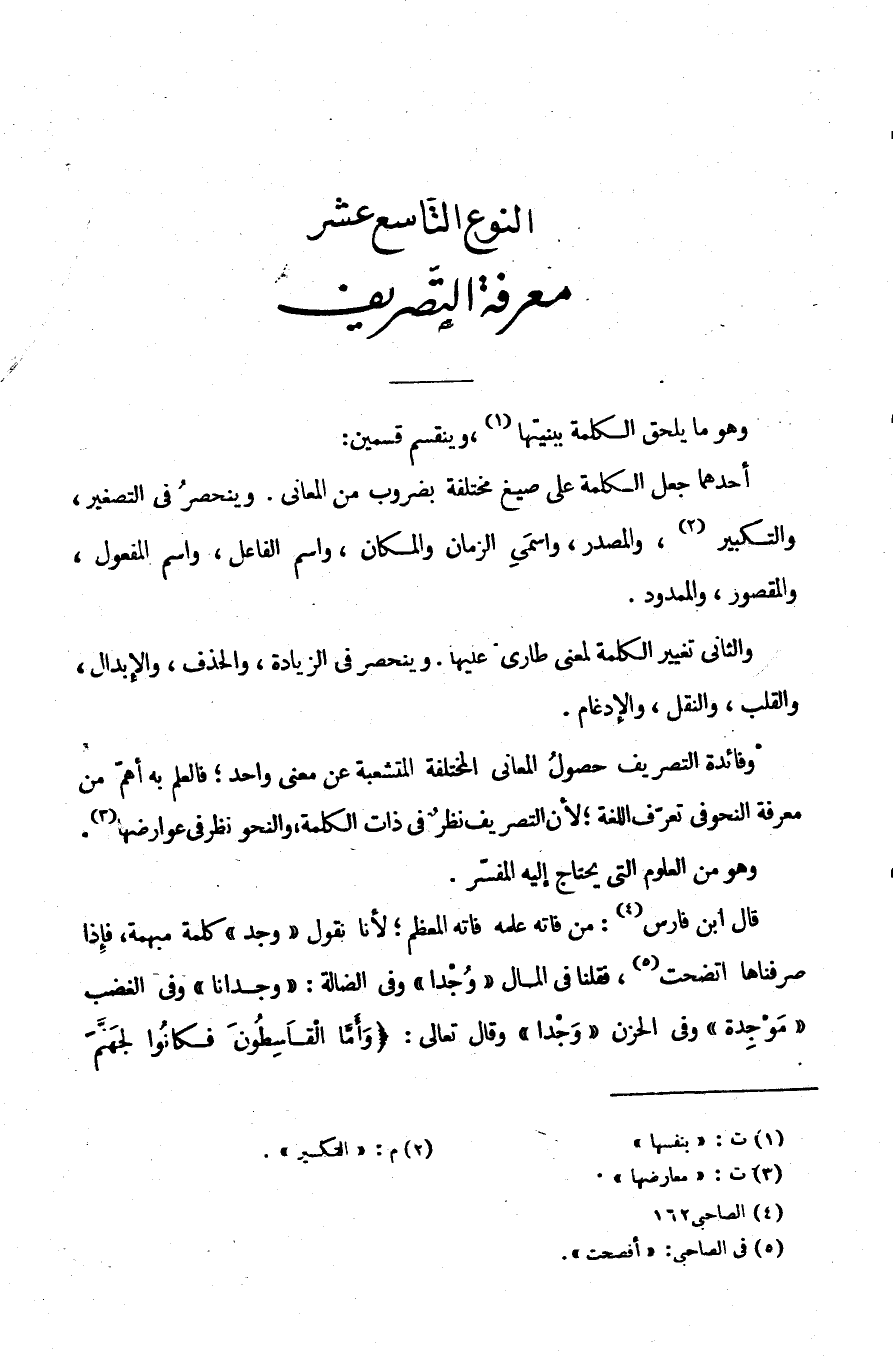 النوع التاسع عشر
معرفة التصريف
وهو ما يلحق الكلمة ببنيتها (١) ، وينقسم قسمين:
أحدهما جعل الكلمة على صيغ مختلفة بضروب من المعانى . وينحصرُ فى التصغير ،
والتكبير (٢) ، والمصدر ، واسمَىِ الزمان والمكان ، واسم الفاعل ، واسم المفعول ،
والمقصور ، والممدود .
والثانى تغيير الكلمة لمعنى طارئ عليها . وينحصر فى الزيادة ، والحذف ، والإبدال ،
والقلب ، والنقل ، والإدغام .
وفائدة التصريف حصولُ المعانى المختلفة المتشعبة عن معنى واحد ؛ فالعلم به أهمّ من
معرفة النحو فى تعرّف اللغة ؛ لأن التصريف نظرٌ فى ذات الكلمة، والنحو نظر فى عوارضها (٣) .
وهو من العلوم التى يحتاج إليه المفسّر .
قال ابن فارس (٤) : من فاته علمه فاته المعظم ؛ لأنا نقول « وجد » كلمة مبهمة، فإذا
صرفناها اتضحت (٥) ، فقلنا فى المال « وُجْدا » وفى الضالة : « وجدانا » وفى الغضب
« مَوْجِدة » وفى الحزن « وَجْدا » وقال تعالى : ﴿وَأَمَّا الْقَاسِطُونَ فَكانُوا لِجَهَنَّمَ
(١) ت : « بنفسها »
(٢) م : « التكسير » .
(٣) ت : « معارضها » .
(٤) الصاحبى ١٦٢
(٥) فى الصاحبى: « أفصحت » .